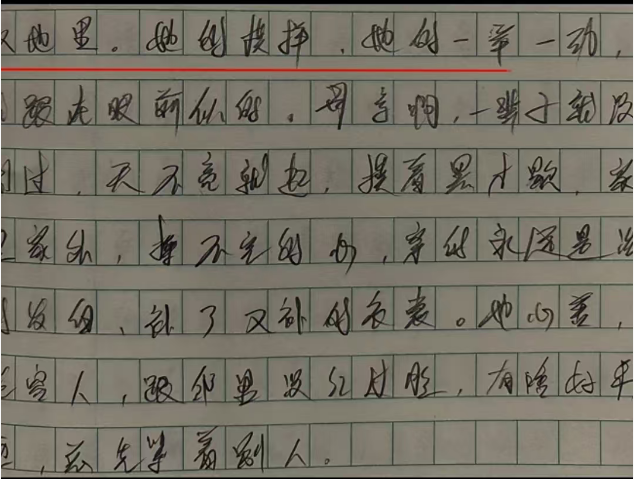 地里。她的模样,她的一举一动,
跟在眼前似的。母亲啊,一辈子就没
过,天不亮就起,摸着黑才歇,家
家外,操不完的心,穿的永远是洗
发白、补了又补的衣裳。她心善,
容人,跟邻里没红过脸,有啥好
,总先紧着别人。